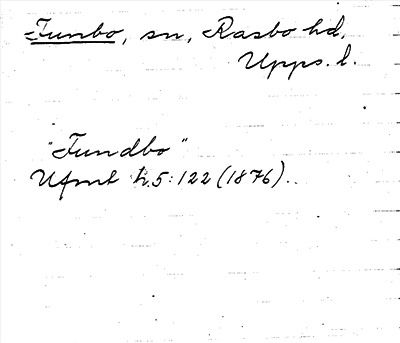 Funbo, sn, Rasbo hd,
Upps. l.
"Fundbo"
Ufmt h.5:122 (1876).